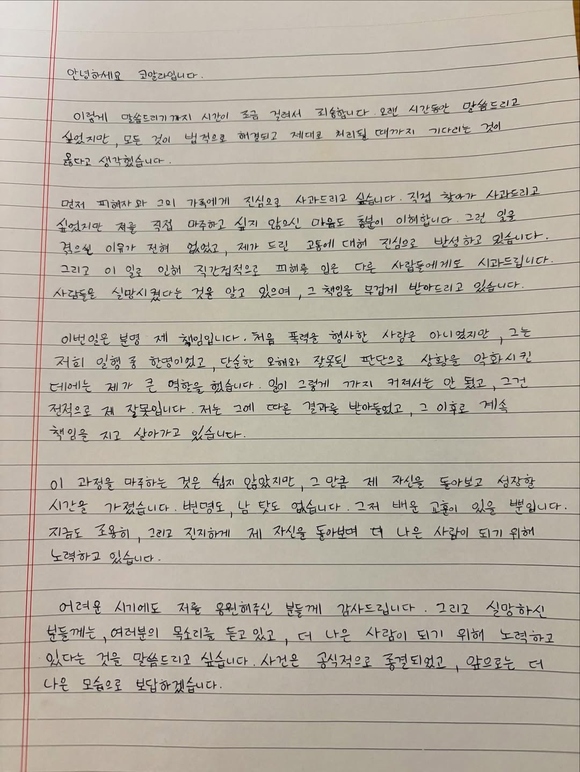 안녕하세요 코알라입니다.
이렇게 말씀드리기까지 시간이 조금 걸려서 죄송합니다. 오랜 시간동안 말씀드리고
싶었지만, 모든 것이 법적으로 해결되고 제대로 처리될 때까지 기다리는 것이
옳다고 생각했습니다.
먼저 피해자와 그의 가족에게 진심으로 사과드리고 싶습니다. 직접 찾아가 사과드리고
싶었지만 저를 직접 마주하고 싶지 않으신 마음도 충분이 이해합니다. 그런 일을
겪으실 이유가 전혀 없었고, 제가 드린 고통에 대해 진심으로 반성하고 있습니다.
그리고 이 일로 인해 직간접적으로 피해를 입은 다른 사람들에게도 사과드립니다.
사람들을 실망시켰다는 것을 알고 있으며, 그 책임을 무겁게 받아드리고 있습니다.
이번일은 분명 제 책임입니다. 처음 폭력을 행사한 사람은 아니였지만, 그는
저희 일행 중 한명이었고, 단순한 오해와 잘못된 판단으로 상황을 악화시킨
데에는 제가 큰 역할을 했습니다. 일이 그렇게 까지 커져서는 안 됐고, 그건
전적으로 제 잘못입니다. 저는 그에 따른 결과를 받아들였고, 그 이후로 계속
책임을 지고 살아가고 있습니다.
이 과정을 마주하는 것은 쉽지 않았지만, 그 만큼 제 자신을 돌아보고 성장할
시간을 가졌습니다. 변명도, 남 탓도 없습니다. 그저 배운 교훈이 있을 뿐입니다.
지금도 조용히, 그리고 진지하게 제 자신을 돌아보며 더 나은 사람이 되기 위해
노력하고 있습니다.
어려운 시기에도 저를 응원해주신 분들께 감사드립니다. 그리고 실망하신
분들께는, 여러분의 목소리를 듣고 있고, 더 나은 사람이 되기 위해 노력하고
있다는 것을 말씀드리고 싶습니다. 사건은 공식적으로 종결되었고, 앞으로는 더
나은 모습으로 보답하겠습니다.